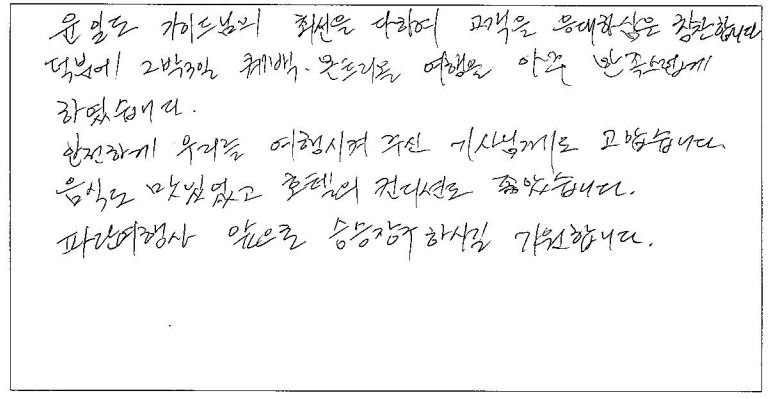 윤일도 가이드님의 최선을 다하여 고객을 응대하심을 칭찬합니다
덕분에! 2박3일 퀘백·몬트리올 여행을 아주 만족스럽게
하였습니다.
안전하게 우리를 여행시켜 주신 기사님께도 고맙습니다.
음식도 맛있었고 호텔의 컨디션도 좋았습니다.
파란여행사 앞으로 승승장구 하시길 기원합니다.